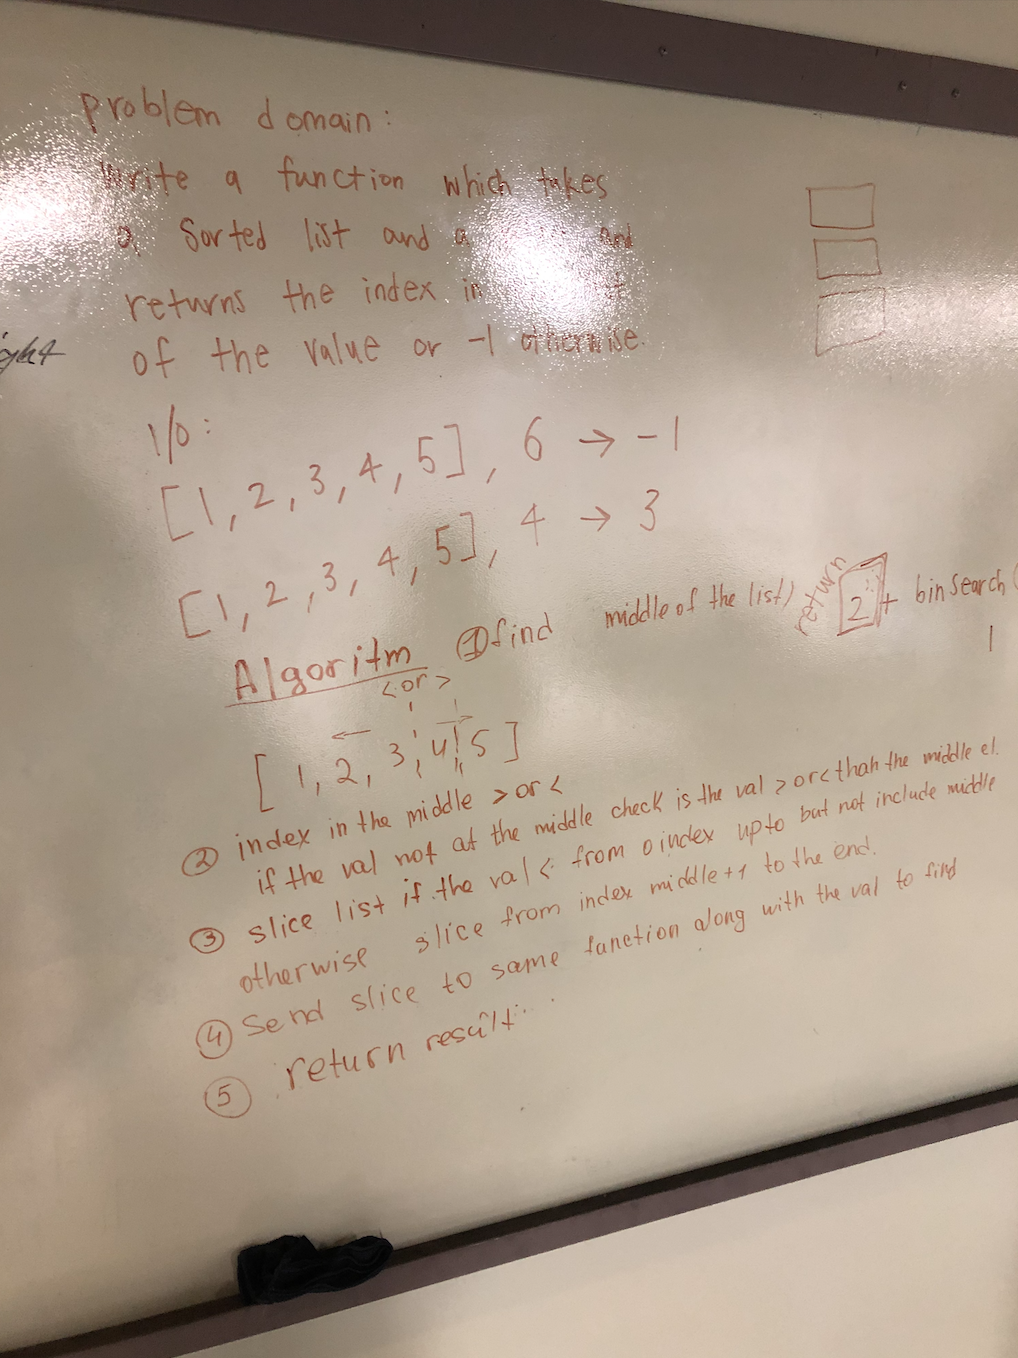 problem domain:
Write a function which takes
a Sorted list and a and
returns the index in
of the value or -1 otherwise.
ight
I/O:
[1, 2, 3, 4, 5], 6 → -1
[1, 2, 3, 4, 5], 4 → 3
Algoritm ① find middle of the list)
return 2 + binsearch(
1
< or >
← →
[ 1, 2, 3, 4, 5 ]
② index in the middle > or <
if the val not at the middle check is the val > or < than the middle el.
③ slice list if the val < from 0 index up to but not include middle
otherwise slice from index middle+1 to the end.
④ Send slice to same function along with the val to find
⑤ return result.